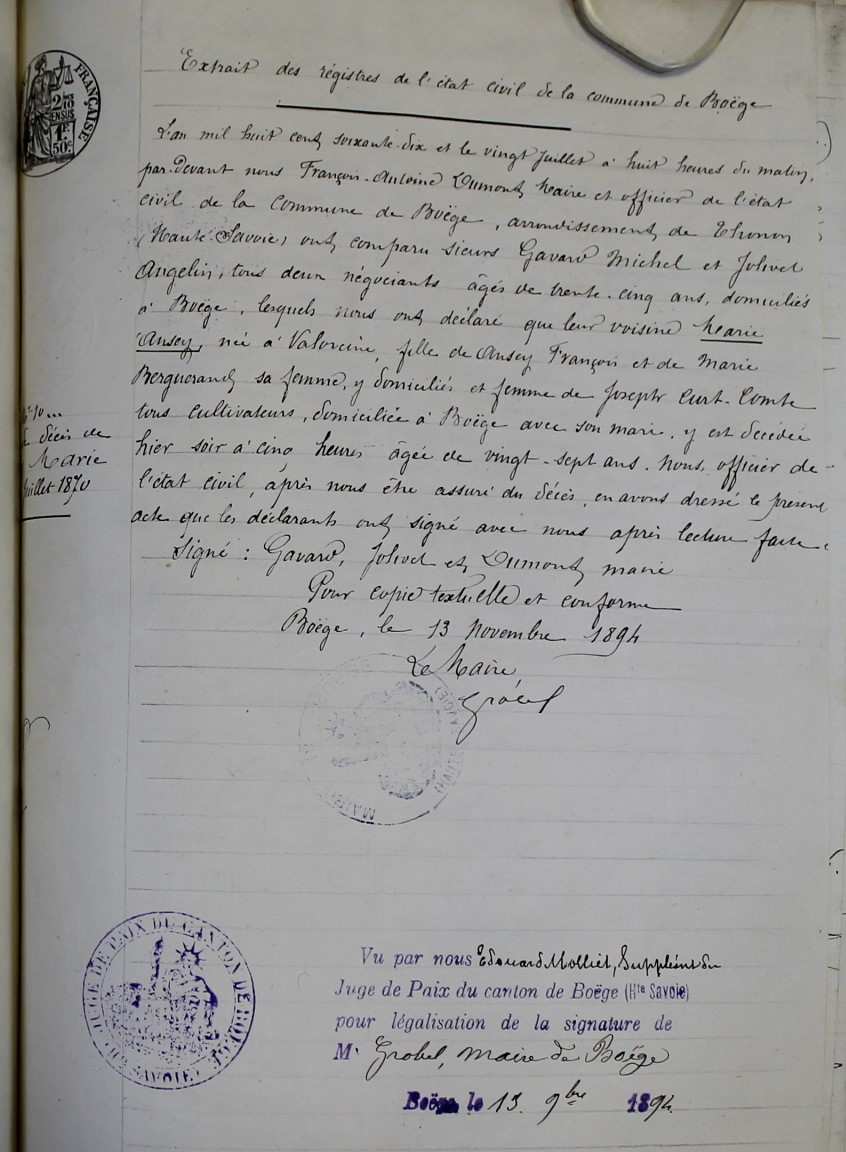 Extrait des régistres de l'état civil de la commune de Boëge
FRANÇAISE
2/10
EN SUS
1F
50c
L'an mil huit cent soixante-dix et le vingt juillet à huit heures du matin,
par-devant nous François-Antoine Dumont, Maire et officier de l'état
civil de la commune de Boëge, arrondissement de Thonon
(Haute-Savoie) ont comparu sieurs Gavard Michel et Jolivet
Angelin, tous deux négociants âgés de trente-cinq ans, domiciliés
à Boëge, lesquels nous ont déclaré que leur voisine Marie
Ansey, née à Valorcine, fille de Ansey François et de Marie
Berguerand sa femme, y domiciliés et femme de Joseph Curt-Comte
tous cultivateurs, domiciliée à Boëge avec son mari, y est décédée
hier soir à cinq heures âgée de vingt-sept ans. Nous, officier de
l'état civil, après nous être assuré du décès, en avons dressé le présent
acte que les déclarants ont signé avec nous après lecture faite.
décès de
Marie
juillet 1870
Signé : Gavard, Jolivet et Dumont, maire
Pour copie textuelle et conforme
Boëge, le 13 Novembre 1894
Le Maire,
Grobel
JUGE DE PAIX DU CANTON DE BOËGE
(HTE SAVOIE)
Vu par nous Edouard Molliet, Suppléant du
Juge de Paix du canton de Boëge (Hte Savoie)
pour légalisation de la signature de
Mr Grobel, maire de Boëge
Boëge le 13 9bre 1894